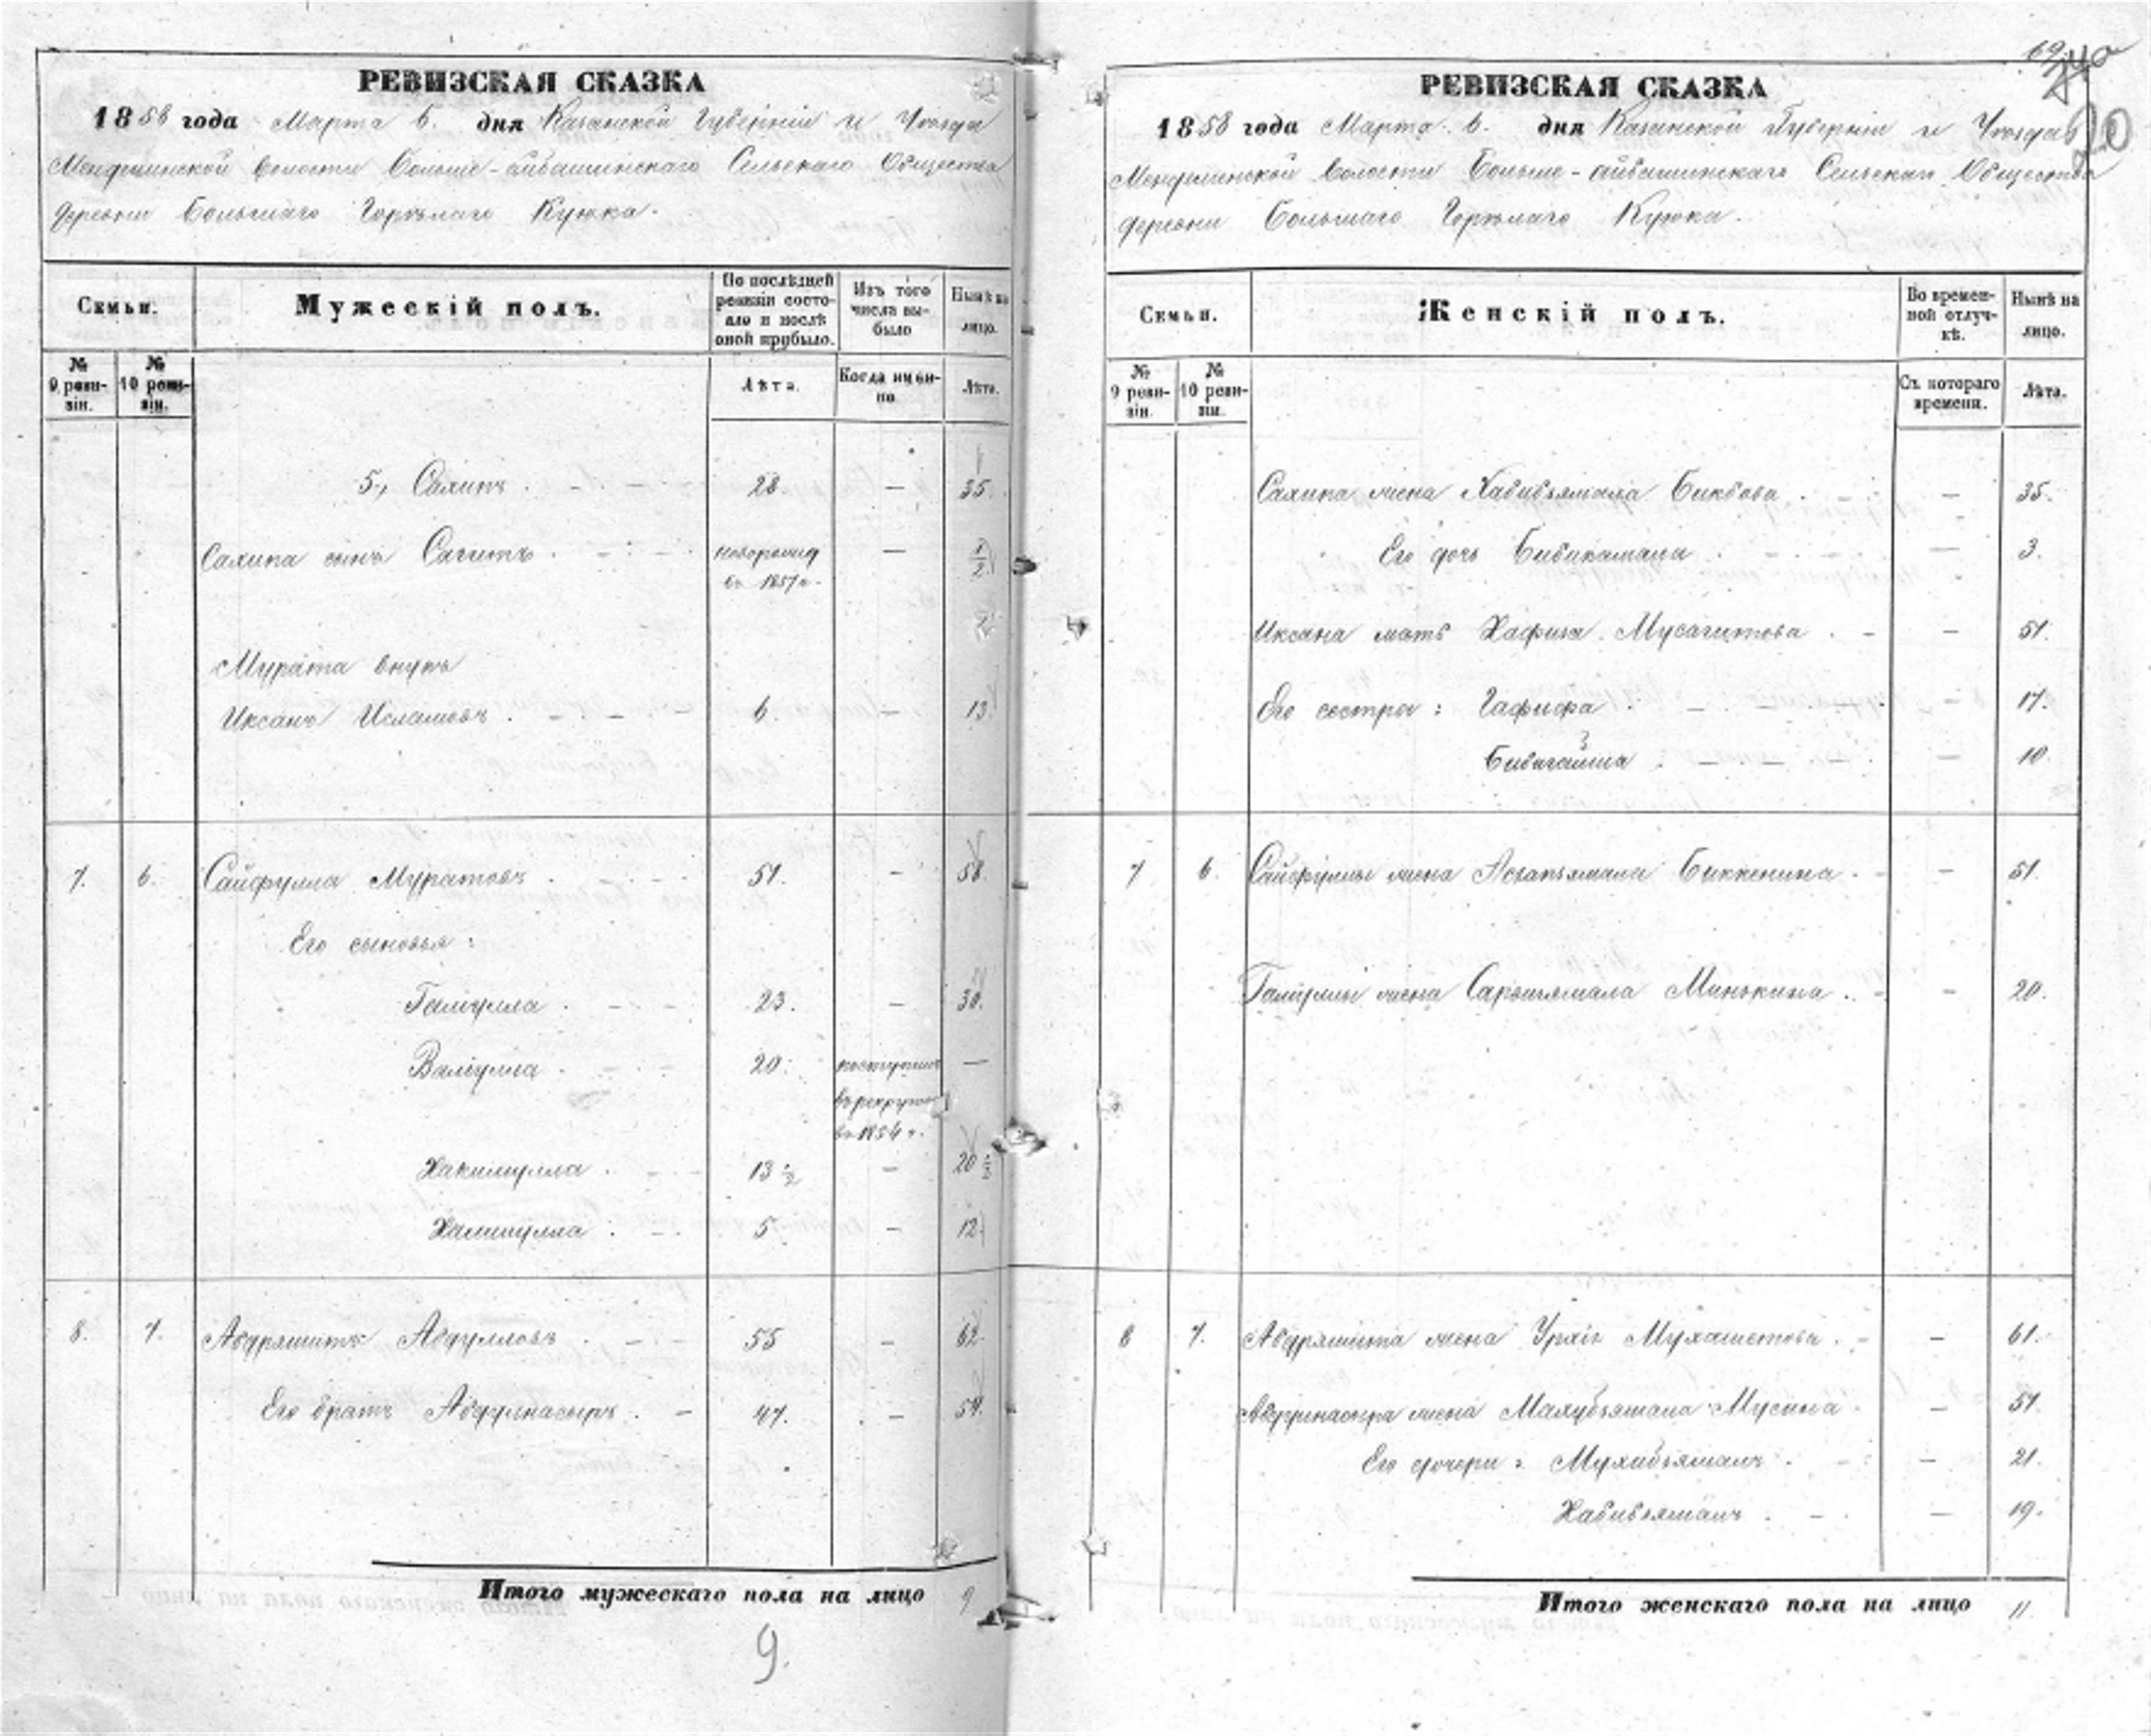 РЕВИЗСКАЯ СКАЗКА
1858 года Марта 6. дня Казанской Губерніи и Уѣзда
волости Больше-айбашинскаго Сельскаго Общества
деревни Большаго Горѣлаго Куюка.
Семьи.
Мужескій полъ.
По послѣдней ревизіи состояло и послѣ оной прибыло.
Изъ того числа выбыло
Нынѣ на лицо.
№ 9 ревизіи.
№ 10 ревизіи.
Лѣта.
Когда именно.
Лѣта.
5., Сахипъ . 28 — 35.
Сахипа сынъ Сагитъ . новорожд — 1/2
въ 1857 г.
Мурата внукъ
Иксанъ Исламовъ . 6. — 13
7. 6. Сайфулла Муратовъ . 51. — 58.
Его сыновья:
Галіулла . 23. — 30.
Валіулла . 20. поступилъ —
въ рекруты
въ 1854 г.
Хакимулла . 13 1/2 — 20 1/2
Халиулла . 5 — 12
8. 7. Абдряшитъ Абдулловъ . 55 — 62.
Его братъ Абдулнасыръ . 47. — 54.
Итого мужескаго пола на лицо 9
9.
69
20
РЕВИЗСКАЯ СКАЗКА
1858 года Марта 6. дня Казанской Губерніи и Уѣзда
волости Больше-айбашинскаго Сельскаго Общества
деревни Большаго Горѣлаго Куюка.
Семьи.
Женскій полъ.
Во временной отлучкѣ.
Нынѣ на лицо.
№ 9 ревизіи.
№ 10 ревизіи.
Съ котораго времени.
Лѣта.
Сахипа жена Хабибзямала Бикбова . — 35.
Его дочь Бибикамала . — 3.
Иксана мать Хафиза Мусагитова . — 51.
Его сестры: Гафифа . — 17.
— 10.
7 6. Сайфуллы жена Биккенина . — 51.
Галіуллы жена Минькина . — 20.
8 7. Абдряшита жена Мухаметова . — 61.
Абдулнасыра жена Махубзямала Мусина . — 51.
Его дочери: Мухибзямалъ . — 21.
Хабибзямалъ . — 19.
Итого женскаго пола на лицо 11.